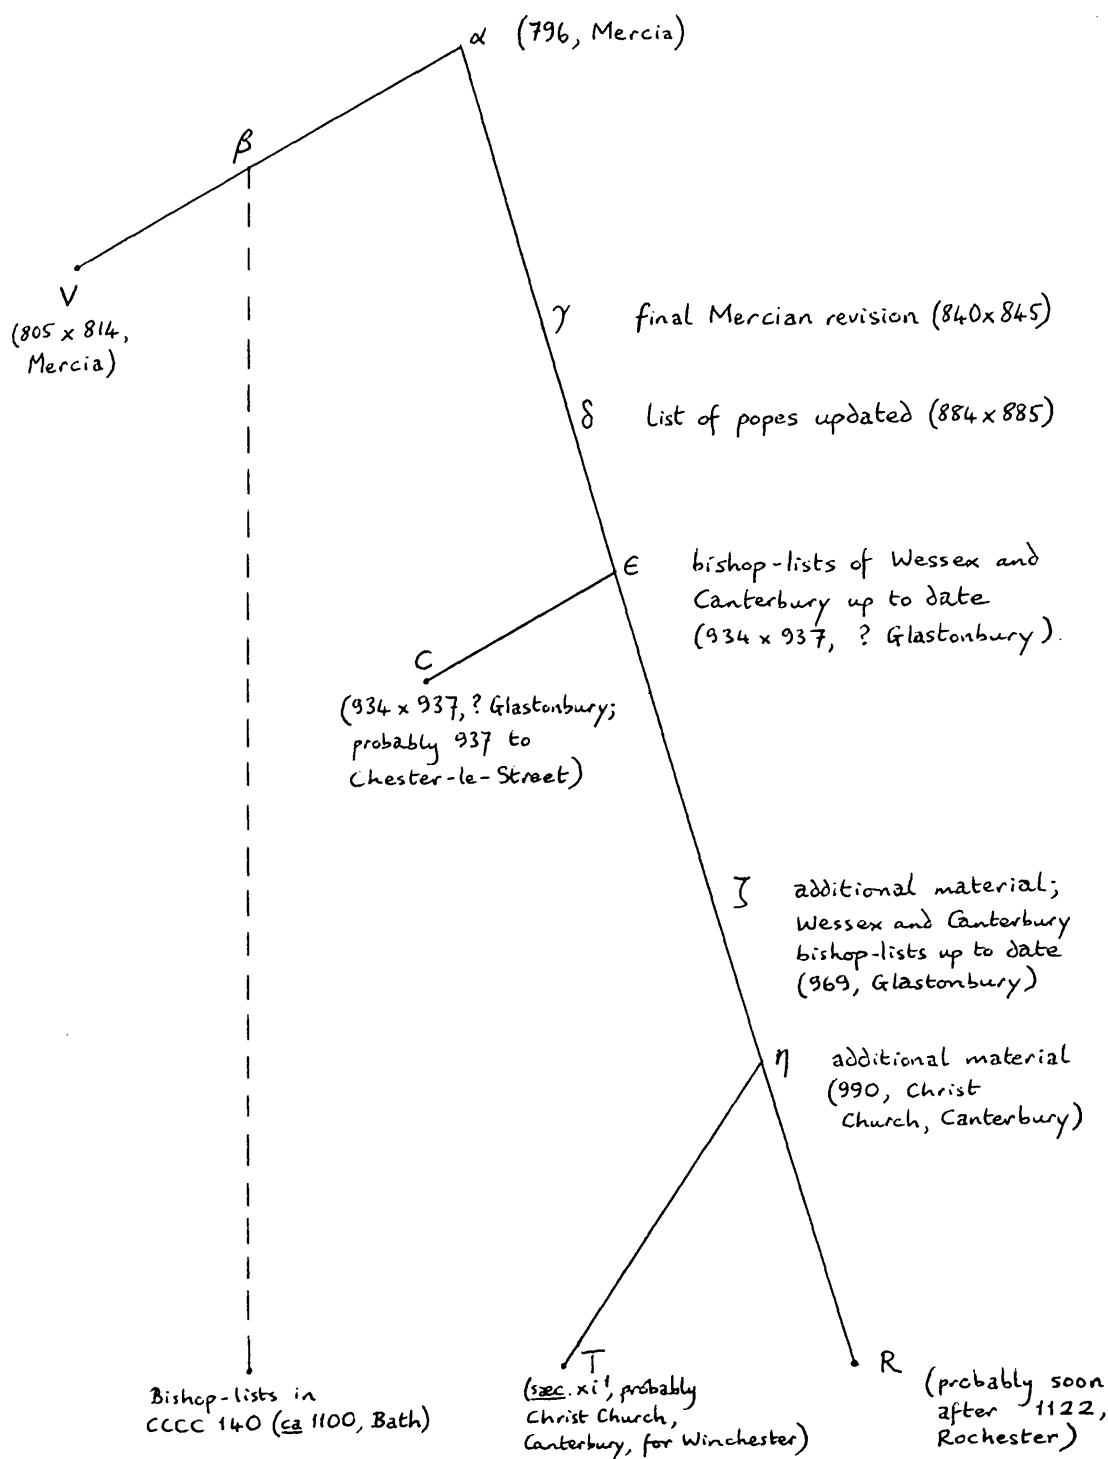 α (796, Mercia)
β
V
(805 x 814,
Mercia)
γ final Mercian revision (840x845)
δ list of popes updated (884x885)
ϵ bishop-lists of Wessex and
Canterbury up to date
(934 x 937, ? Glastonbury).
C
(934 x 937, ? Glastonbury;
probably 937 to
Chester-le-Street)
ζ additional material;
Wessex and Canterbury
bishop-lists up to date
(969, Glastonbury)
η additional material
(990, Christ
Church, Canterbury)
Bishop-lists in
CCCC 140 (ca 1100, Bath)
T
(sæc. xi¹, probably
Christ Church,
Canterbury, for Winchester)
R
(probably soon
after 1122,
Rochester)